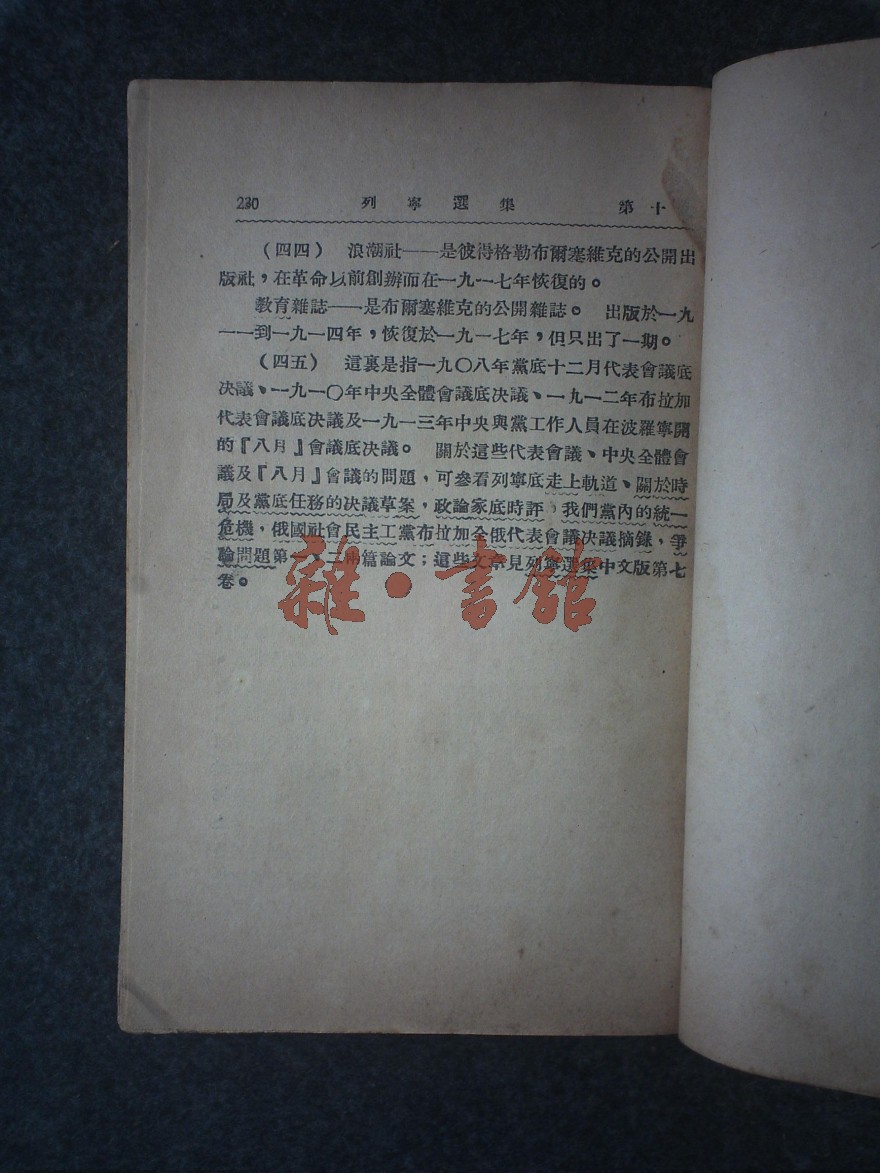 230 列寧選集 第十
（四四） 浪潮社——是彼得格勒布爾塞維克的公開出
版社，在革命以前創辦而在一九一七年恢復的。
教育雜誌——是布爾塞維克的公開雜誌。 出版於一九
一一到一九一四年，恢復於一九一七年，但只出了一期。
（四五） 這裏是指一九〇八年黨底十二月代表會議底
决議、一九一〇年中央全體會議底决議、一九一二年布拉加
代表會議底决議及一九一三年中央與黨工作人員在波羅寧開
的『八月』會議底决議。 關於這些代表會議、中央全體會
議及『八月』會議的問題，可參看列寧底走上軌道、關於時
局及黨底任務的决議草案，政論家底時評，我們黨内的統一
危機，俄國社會民主工黨布拉加全俄代表會議决議摘錄，爭
論問題第一、二兩篇論文；這些文章見列寧選集中文版第七
卷。
雜·書館